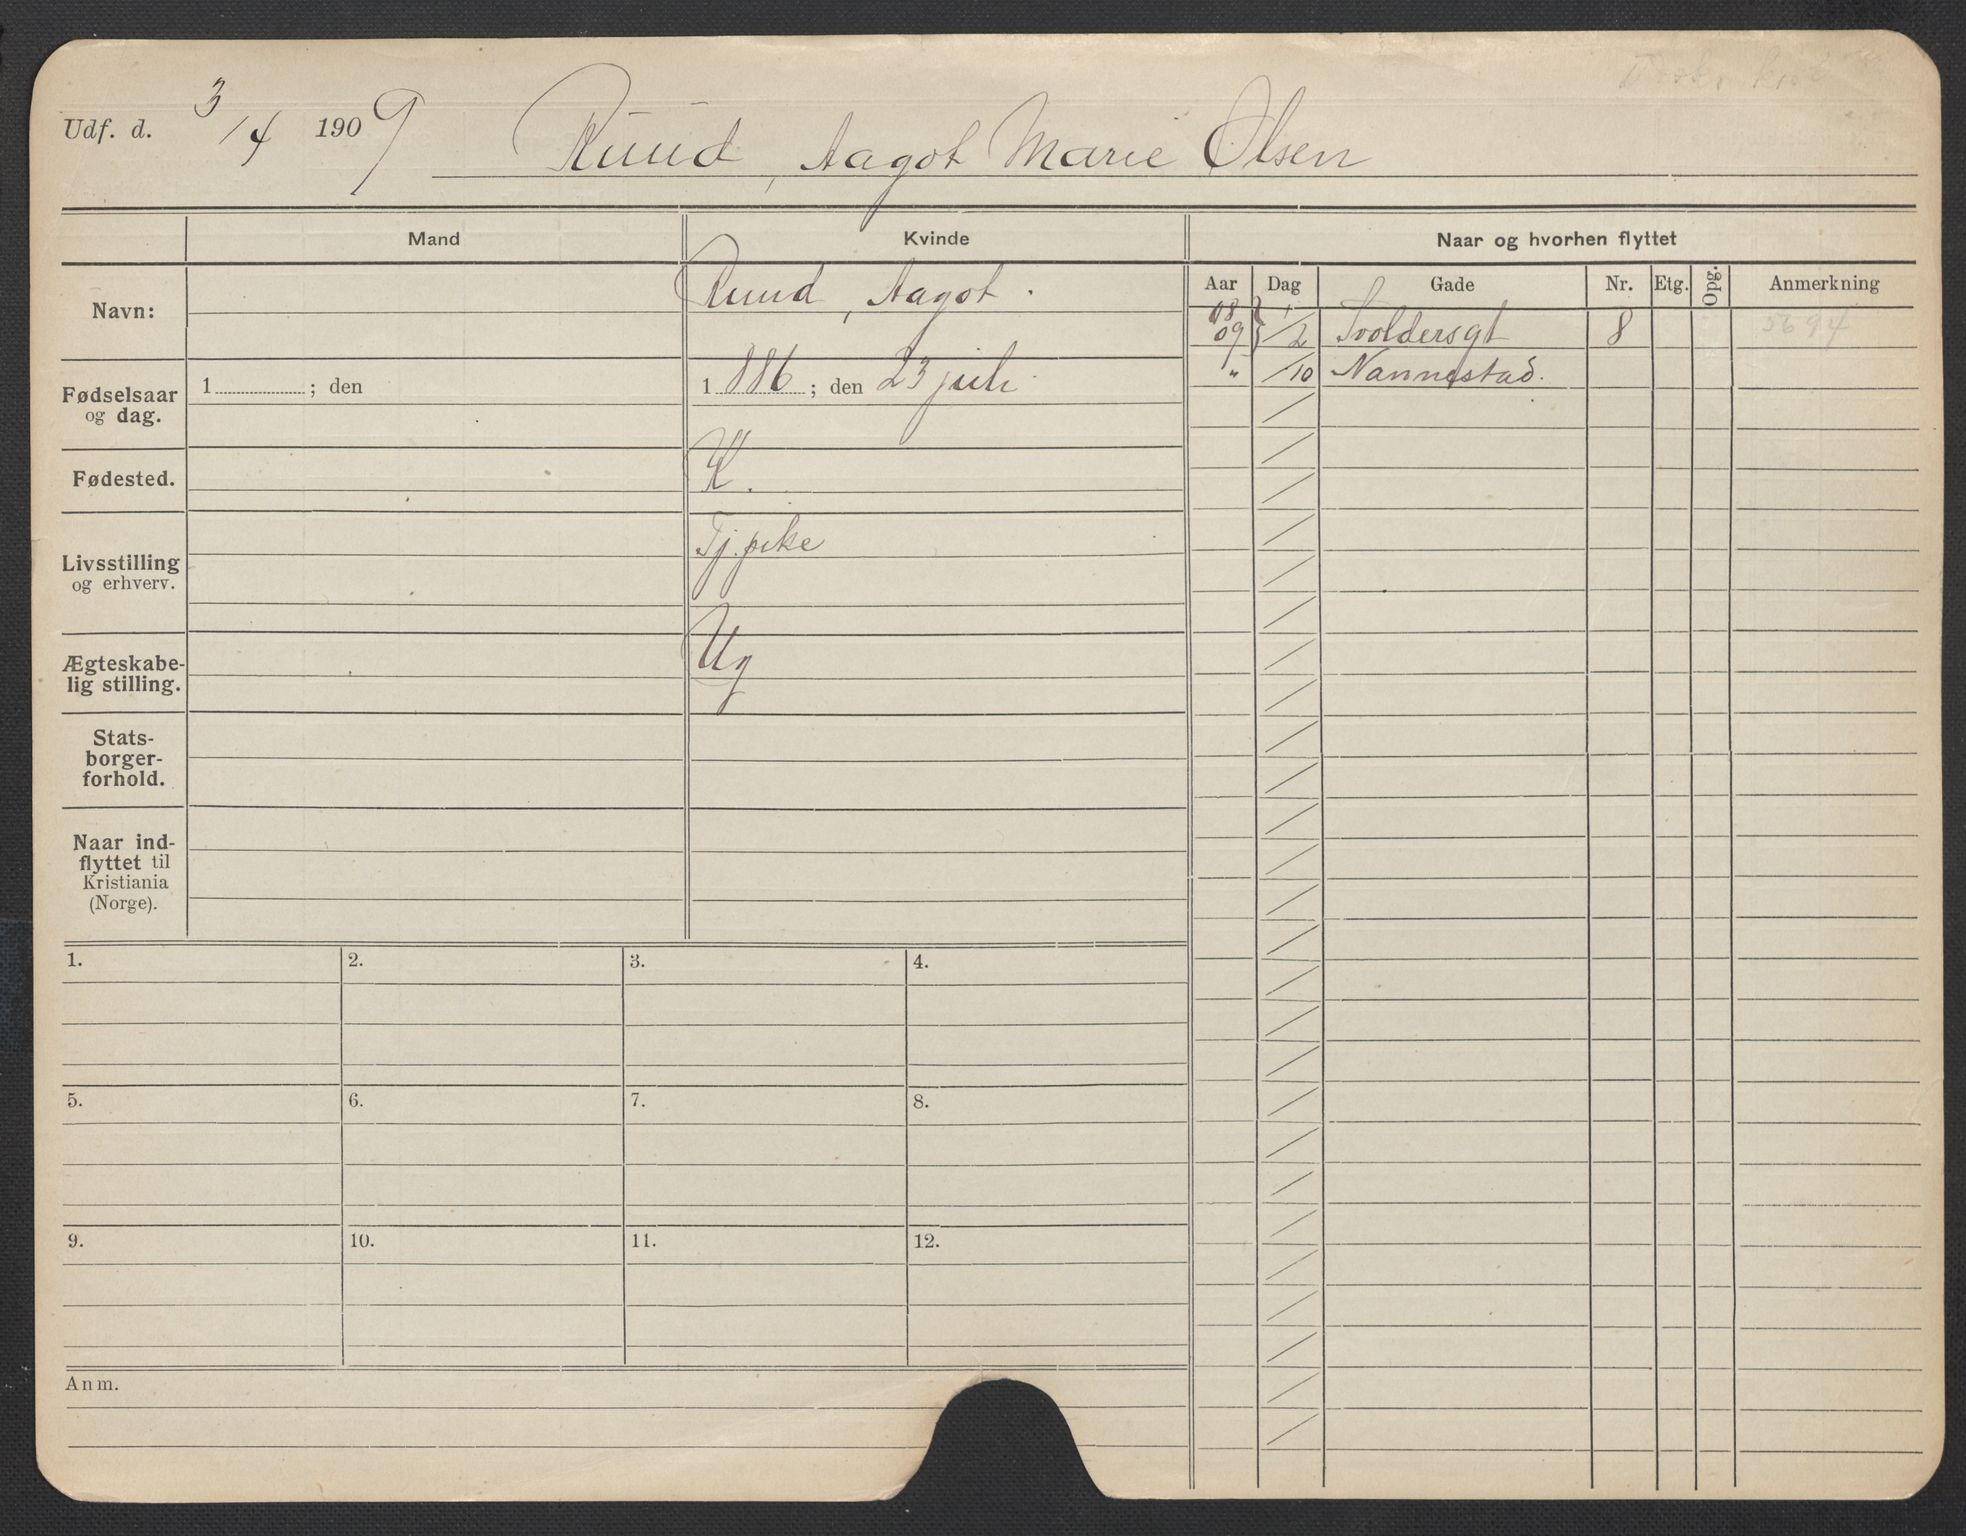 Udf. d. 3/4 1909 Ruud, Aagot Marie Olsen
Mand Kvinde Naar og hvorhen flyttet
Navn: Ruud, Aagot.
Aar Dag Gade Nr. Etg. Opg. Anmerkning
08
09 } /2 Svoldersgt 8 5694
" /10 Nannestad.
Fødselsaar
og dag.
1 ; den
1886 ; den 23 juli
Fødested. K.
Livsstilling
og erhverv.
Tj.pike
Ægteskabe-
lig stilling.
Ug
Stats-
borger-
forhold.
Naar ind-
flyttet til
Kristiania
(Norge).
1. 2. 3. 4.
5. 6. 7. 8.
9. 10. 11. 12.
Anm.